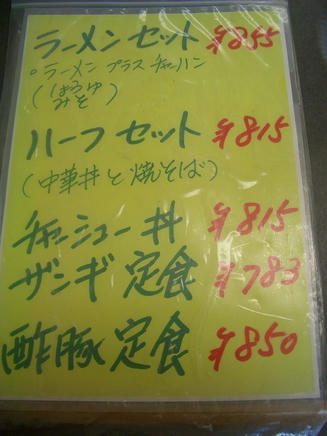 ラーメンセット ¥855
。ラーメン プラス チャーハン
(しょうゆ
みそ)
ハーフセット ¥815
(中華丼と焼そば)
チャーシュー丼 ¥815
ザンギ定食 ¥783
酢豚定食 ¥850